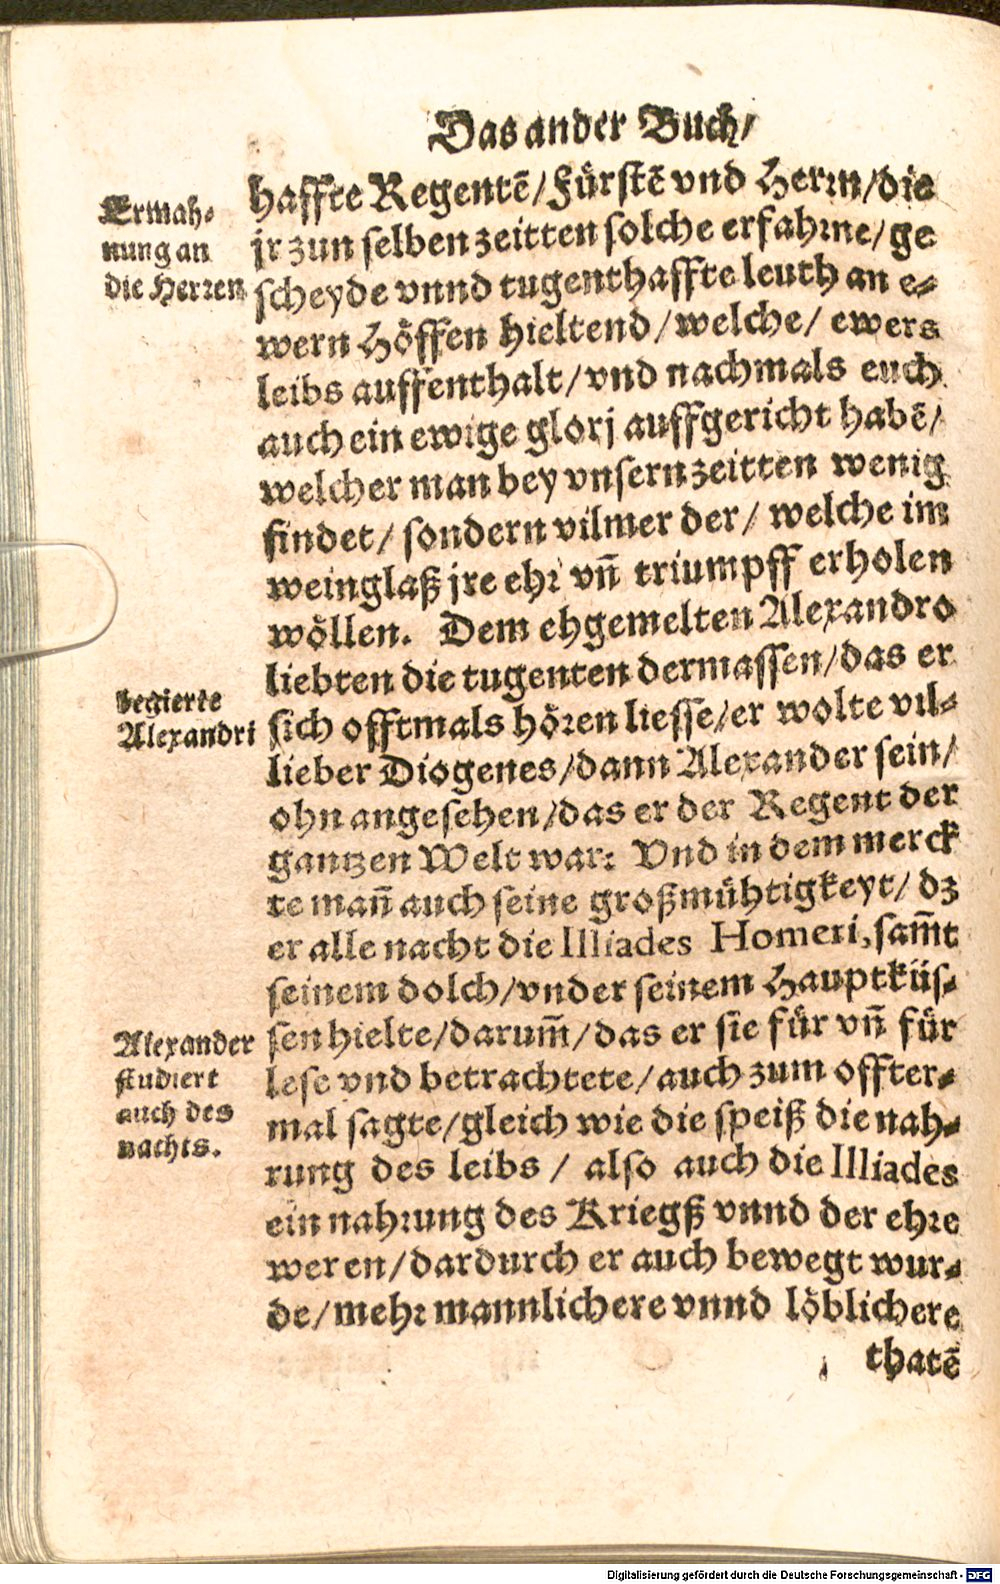 Das ander Buch/
Ermah-
nung an
die Herren
haffte Regentē/Fürstē vnd Herrn/die
jr zun selben zeitten solche erfahrne/ge
scheyde vnnd tugenthaffte leuth an e-
wern Höffen hieltend/welche/ ewers
leibs auffenthalt/vnd nachmals euch
auch ein ewige glorj auffgericht habē/
welcher man bey vnsern zeitten wenig
findet/ sondern vilmer der/ welche im
weinglaß jre ehr vñ triumpff erholen
wöllen. Dem ehgemelten Alexandro
liebten die tugenten dermassen/das er
begierte
Alexandri
sich offtmals hören liesse/er wolte vil-
lieber Diogenes/dann Alexander sein/
ohn angesehen/das er der Regent der
gantzen Welt war: Vnd in dem merck
te mañ auch seine großmühtigkeyt/ dz
er alle nacht die Illiades Homeri, sam̃t
seinem dolch/vnder seinem Hauptküs-
sen hielte/darum̃/das er sie für vñ für
Alexander
studiert
auch des
nachts.
lese vnd betrachtete/auch zum offter-
mal sagte/gleich wie die speiß die nah-
rung des leibs/ also auch die Illiades
ein nahrung des Kriegß vnnd der ehre
weren/dardurch er auch bewegt wur-
de/mehr mannlichere vnnd löblichere
thatē
Digitalisierung gefördert durch die Deutsche Forschungsgemeinschaft - DFG